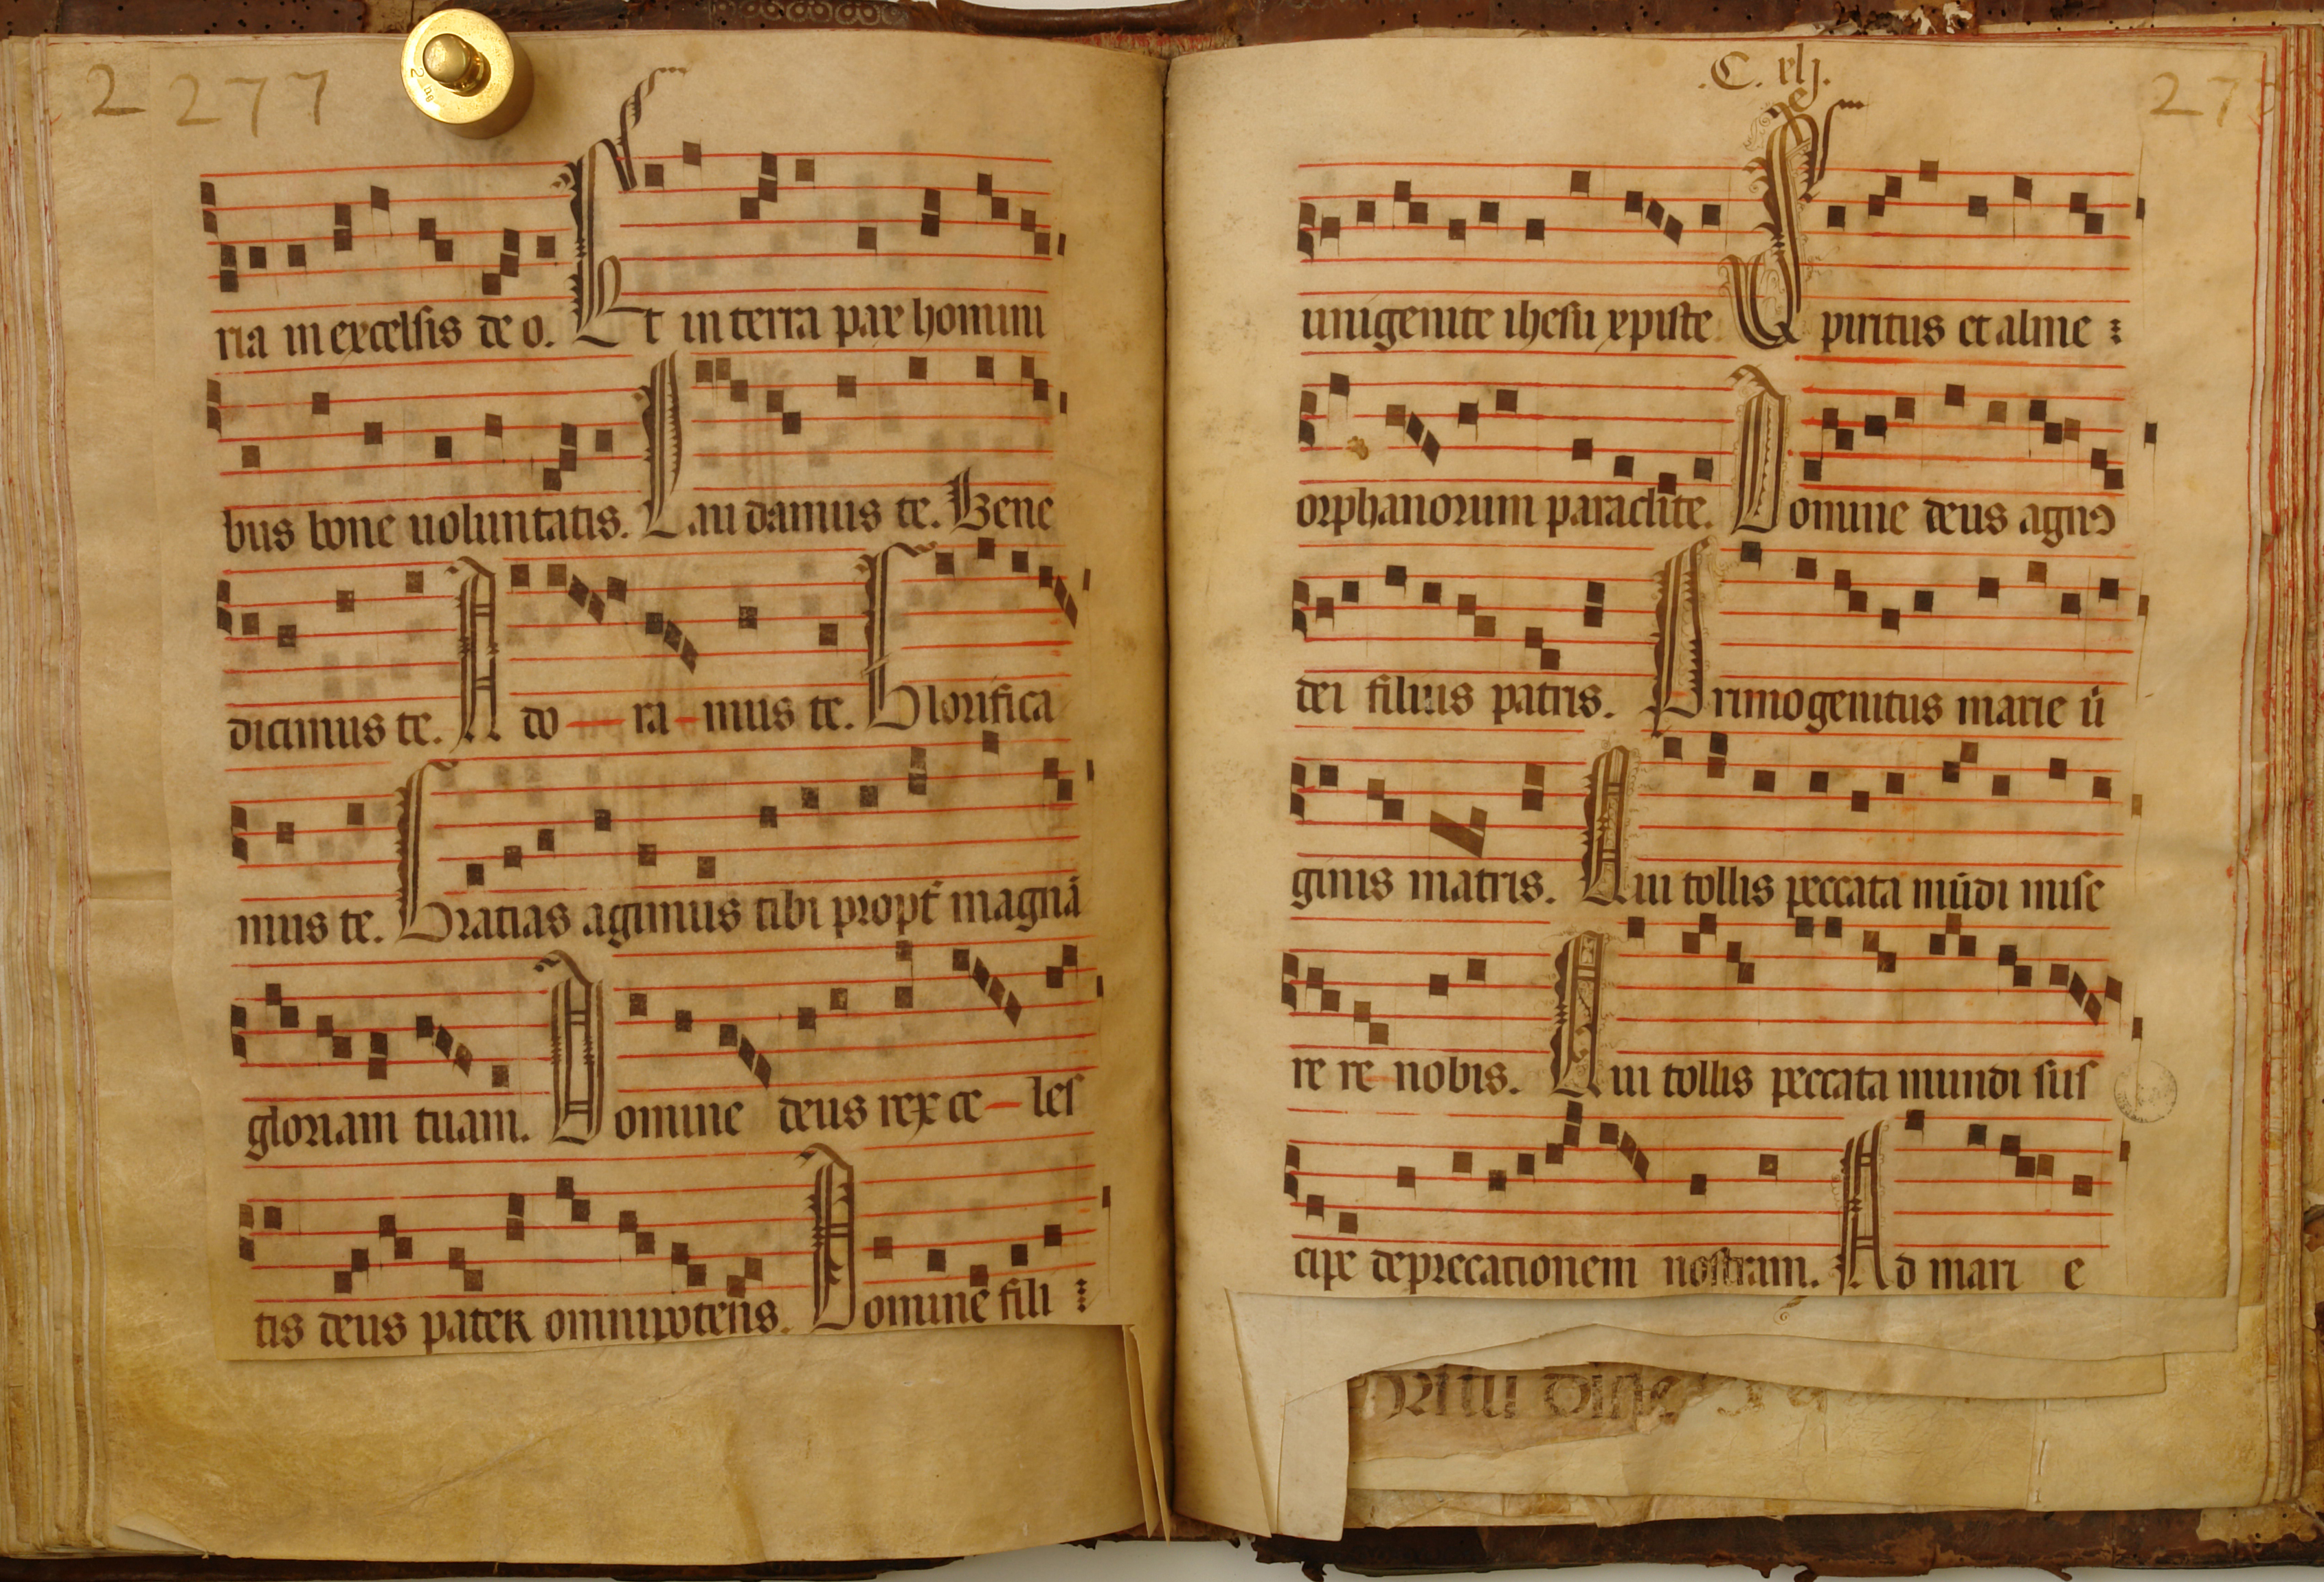 2 277
ria in excelsis deo. Et in terra pax homini
bus bone uoluntatis. Laudamus te. Bene
dicimus te. Ado—ra—mus te. Glorifica
mus te. Gratias agimus tibi propt̄ magnā
gloriam tuam. Domine deus rex ce—les
tis deus pater omnipotens. Domine fili
.C. xlj.
27
unigenite ihesu xpiste Spiritus et alme
orphanorum paraclite. Domine deus agnꝰ
dei filius patris. Primogenitus marie ū
ginis matris. Qui tollis peccata mūdi mise
re re nobis. Qui tollis peccata mundi sus
cipe deprecationem nostram. Ad mari e